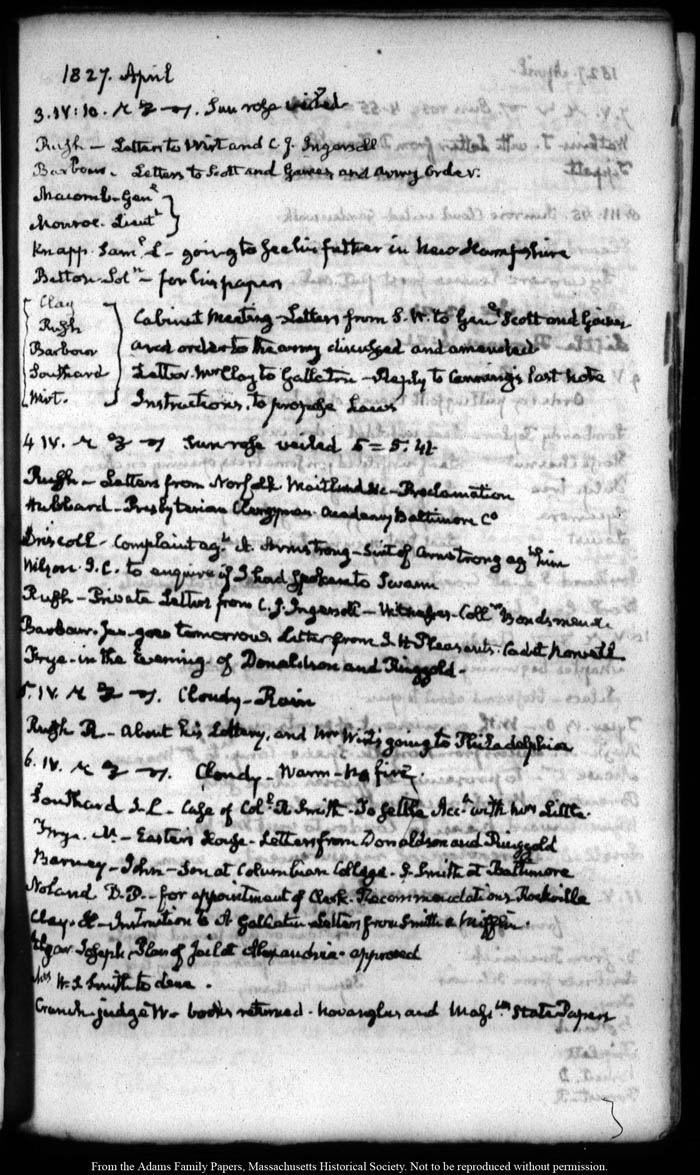 1827. April
3. IV: 10. Sun rose veiled
Rush – Letters to Wirt and C. J. Ingersoll
Barbour. Letters to Scott and Gaines, and Army Order.
Macomb. Genl
Monroe. Lieut
Knapp. Saml L – going to see his father in New Hampshire
Belton. Soln – for his papers
Clay
Rush
Barbour
Southard
Wirt.
Cabinet Meeting – Letters from S. W. to Genls Scott and Gaines
and order to the army discussed and amended
Letter. Mr Clay to Gallatin – Reply to Canning's last Note
Instructions, to propose Laws
4 IV. Sun rose veiled 5 = 5. 42
Rush – Letters from Norfolk Maitland &c – Proclamation
Hubbard – Presbyterian Clergyman. Academy Baltimore Co
Driscoll – Complaint agt Armstrong – Suit of Armstrong agt him
Wilson. I. C. to enquire if I had spoken to Swann
Rush – Private Letters from C. J. Ingersoll – Witnesses – Collrs Bondsmen &c.
Barbour. Jas – goes tomorrow. Letter from J. H. Pleasants. Cadet Norvell
Frye – in the Evening – of Donaldson and Ringgold –
5. IV. Cloudy – Rain
Rush R – About his Lottery, and Mr Wirt's going to Philadelphia
6. IV. Cloudy – Warm – No fire
Southard S. L. – Case of Coll Smith – To settle Acct with Mrs Little.
Frye. – Eastern House – Letters from Donaldson and Ringgold
Barney – John – Son at Columbian College – S. Smith at Baltimore
Noland D. D. – for appointment of Clerk – Recommendations. Rockville
Clay. H – Instruction to A Gallatin – Letters from Smith & Mifflin.
Elgar Joseph, Plan of Jail at Alexandria – approved
Mrs W. S. Smith to dine.
Cranch – judge W – books returned – Novanglus and Masstts State Papers
From the Adams Family Papers, Massachusetts Historical Society. Not to be reproduced without permission.